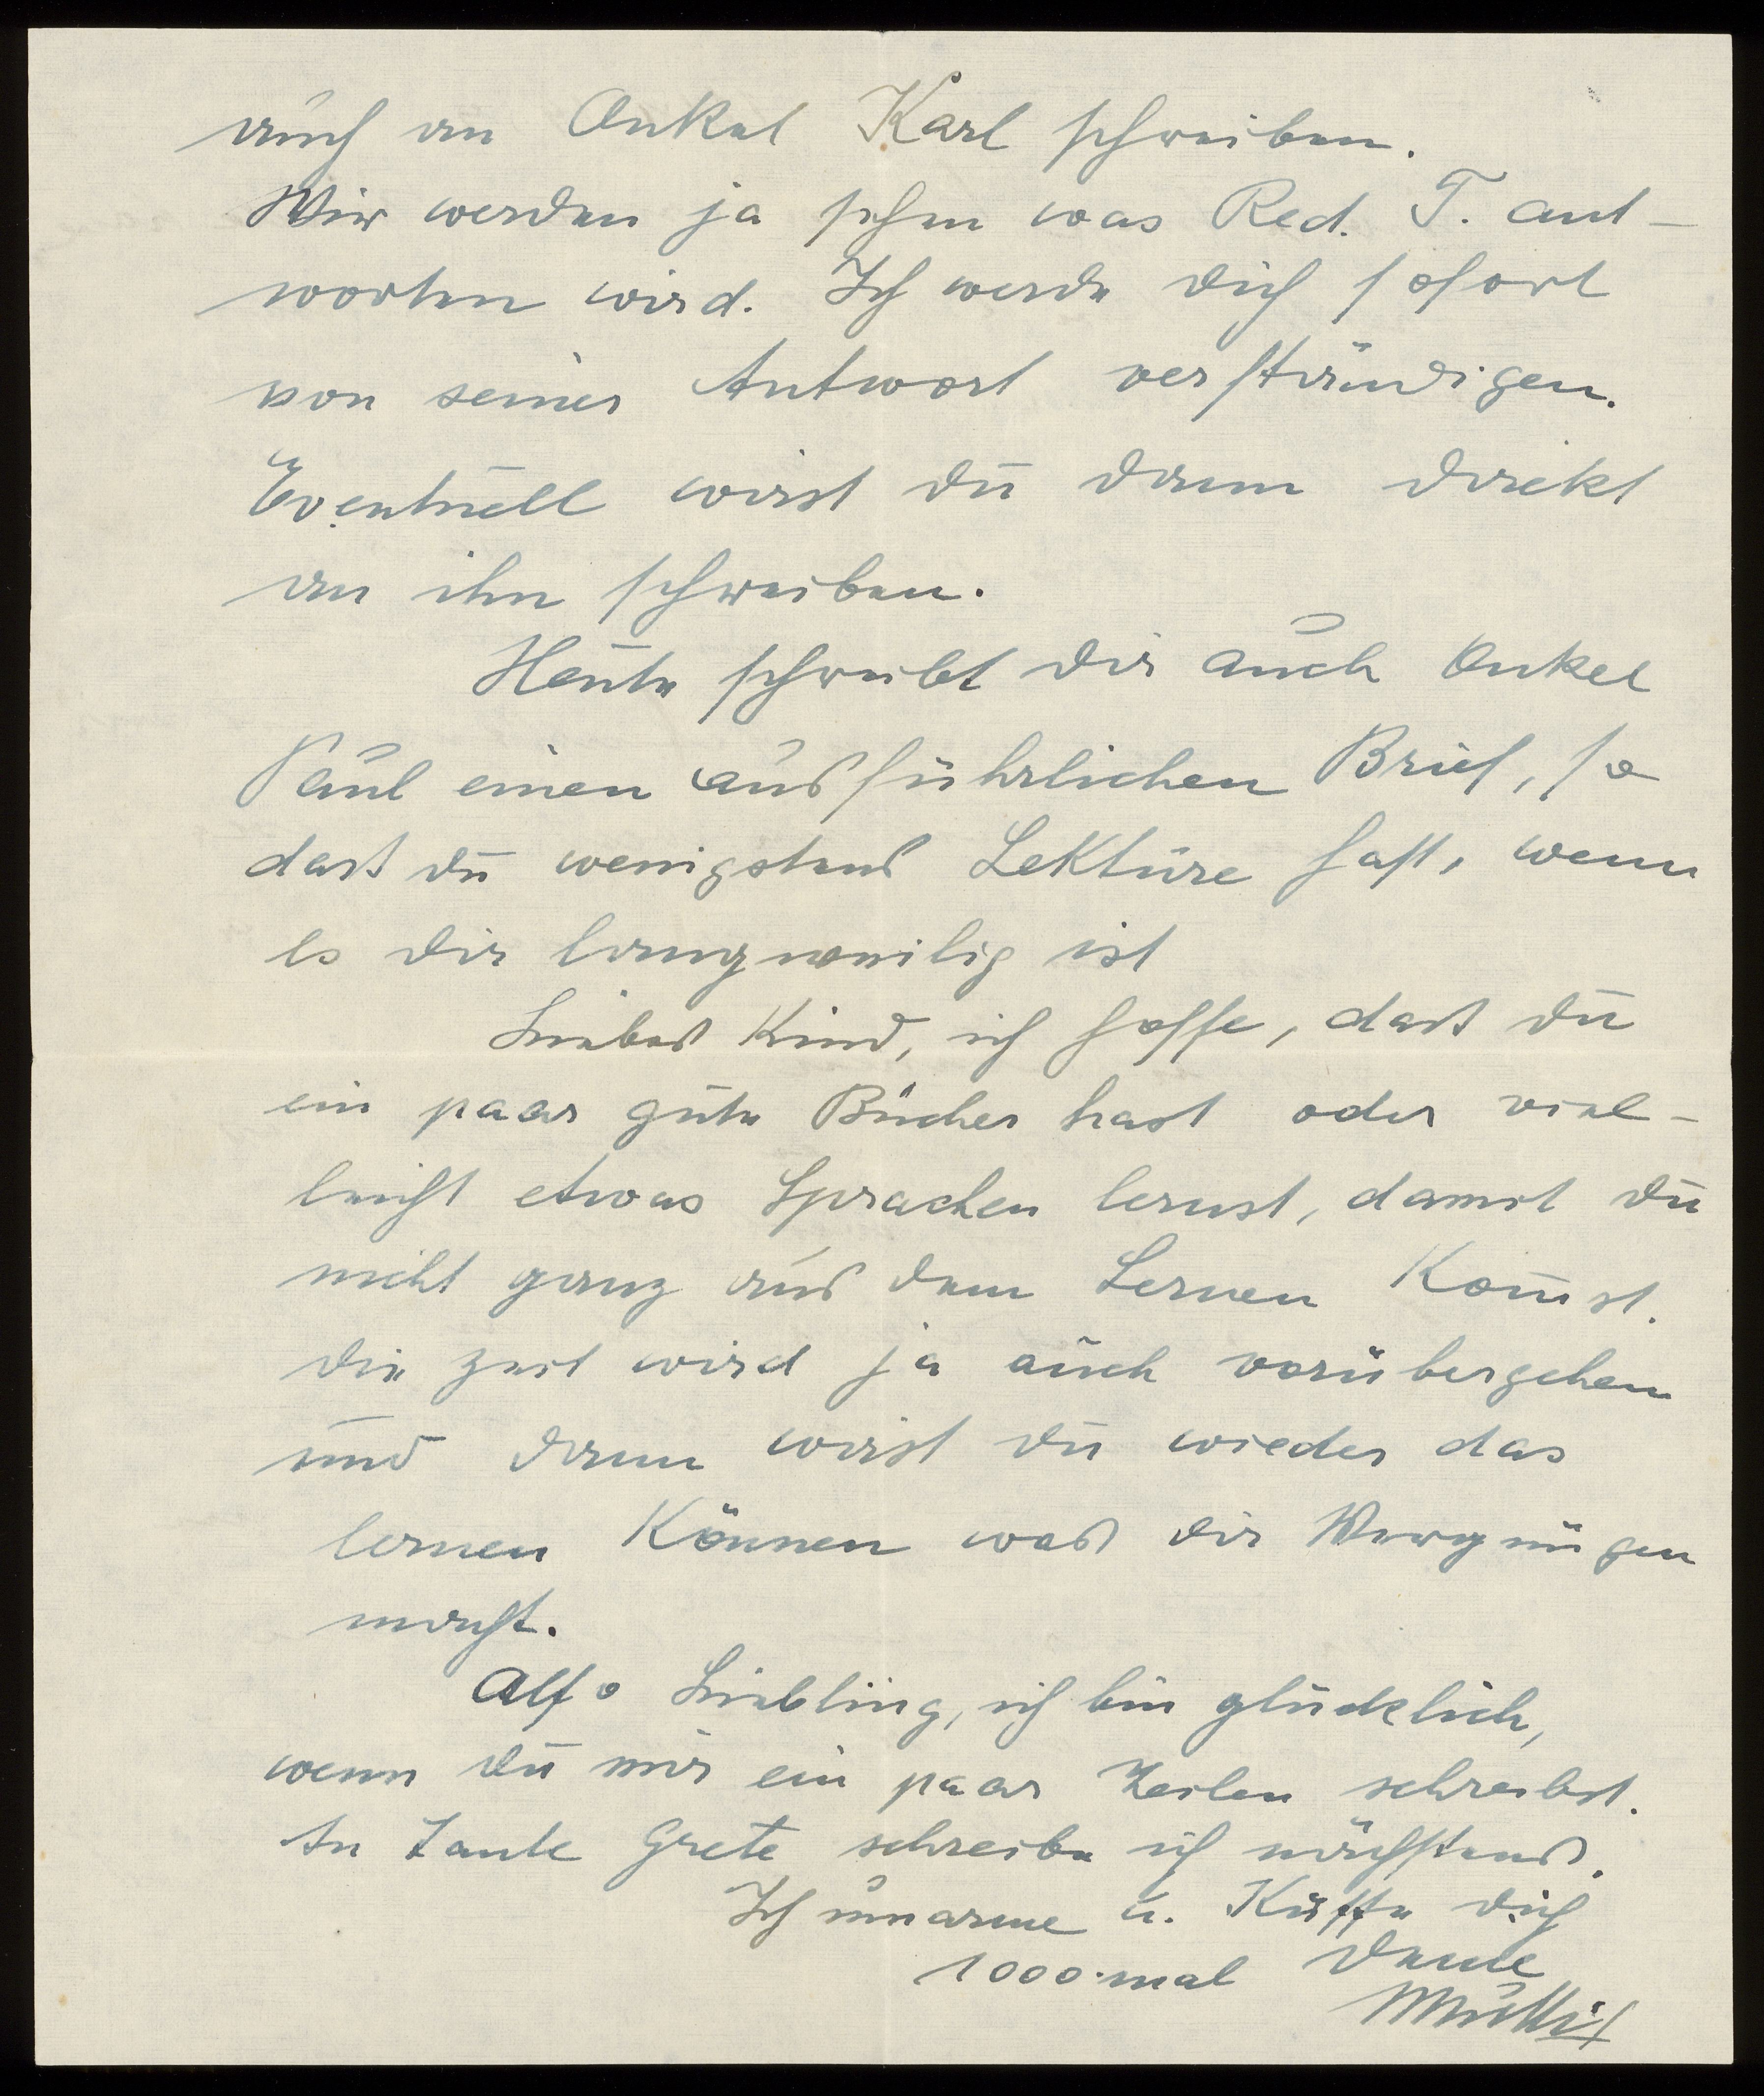 auch an Onkel Karl schreiben.
Wir werden ja sehn was Red. T. ant-
worten wird. Ich werde dich sofort
von seiner Antwort verständigen.
Eventuell wirst du dann direkt
an ihn schreiben.
Heute schreibt dir auch Onkel
Paul einen ausführlichen Brief, so
dass du wenigstens Lektüre hast, wenn
es dir langweilig ist
Liebes Kind, ich hoffe, dass du
ein paar gute Bücher hast oder viel-
leicht etwas Sprachen lernst, damit du
nicht ganz aus dem Lernen kom̄st.
Die Zeit wird ja auch vorübergehen
und dann wirst du wieder das
lernen können was dir Vergnügen
macht.
Also Liebling, ich bin glücklich,
wenn du mir ein paar Zeilen schreibst.
An Tante Grete schreibe ich nächstens.
Ich umarme u. küsse dich
1000 mal Deine
Mutti